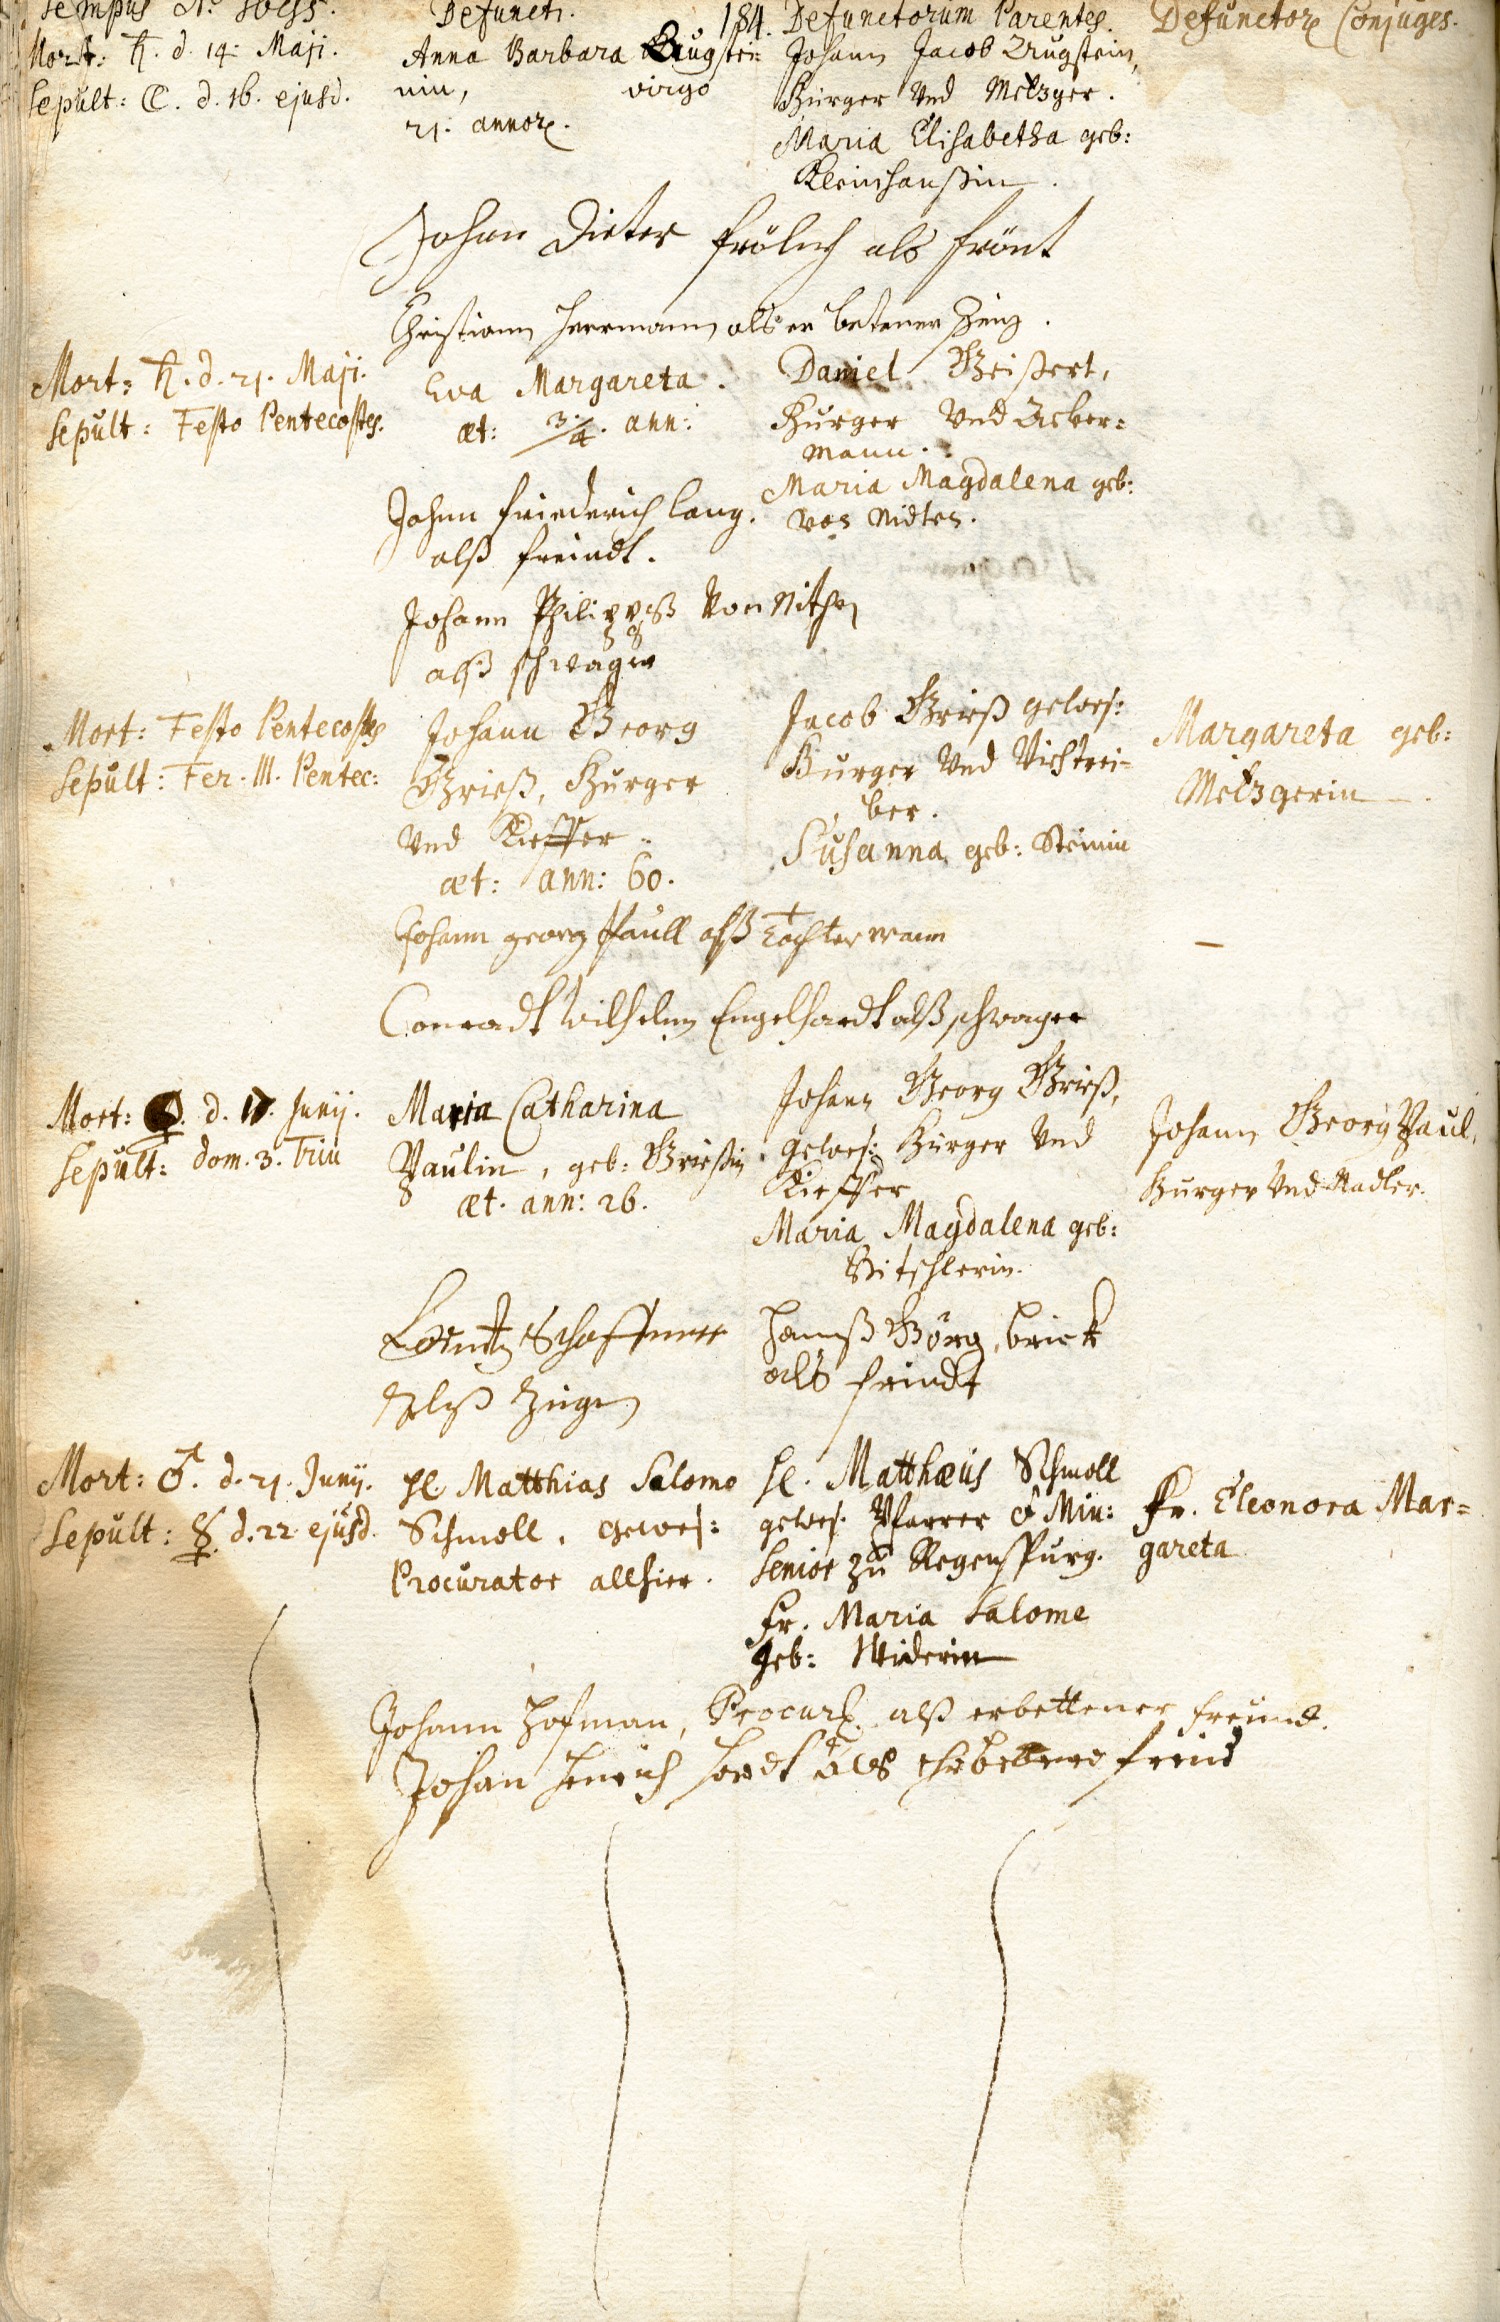 Tempus
Defuncti.
184.
Defunctorum Parentes.
Defunctor. Conjuges.
Mort: ♄. d. 14. Maji.
Sepult: ☾. d. 16. ejusd.
Anna Barbara Zugstei-
nin, virgo
21. annor.
Johann Jacob Zugstein,
Burger und Metzger.
Maria Elisabetha geb:
Kleinhanßin.
Johan Dieter frölich als frönt
Christiann Herrmann als er betener Zeug.
Mort: ♄. d. 21. Maji.
Sepult: Festo Pentecostes.
Eva Margareta.
æt: 3/4. ann:
Daniel Geißert,
Burger und Acker=
mann.
Maria Magdalena geb:
von Nidten.
Johan friederich lang.
alß freindt.
Johann Philippuß von Nithen
alß schwager
Mort: Festo Pentecostes
Sepult: Fer. III. Pentec:
Johann Georg
Grieß, Burger
und Kieffer.
æt: ann: 60.
Jacob Grieß gewes:
Burger und Viehtrei-
ber.
Susanna geb: Steinin
Margareta geb:
Metzgerin.
Johann georg Paull alß Tochtermann
Conradt Wilhelm Engelhardt alß schwager
Mort: ♀. d. 17. Junij.
Sepult: dom. 3. Trin
Maria Catharina
Paulin, geb: Grießin.
æt. ann: 26.
Johann Georg Grieß,
gewes: Burger und
Kieffer
Maria Magdalena geb:
Bitschlerin.
Johann Georg Paul,
Burger und Nadler.
Lorentz Schaffner
alß Zeugen
Hanß Görg, brick
als freindt
Mort: ♂. d. 21. Junij.
Sepult: ☿. d. 22 ejusd.
H. Matthias Salomo
Schmoll, gewes:
Procurator allhier.
H. Matthæus Schmoll
gewes. Pfarrer & Min:
Senior zu Regenspurg.
Fr. Maria Salome
geb: Widerin
Fr. Eleonora Mar=
gareta
Johann Hofman, Procur. alß erbettener freünd.
Johan Henrich als ehrbettene freind